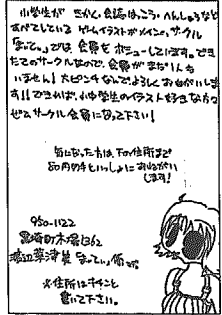 小学生が きかく、会誌はっこう、へんしゅうなど
すべてしている ゲームイラストがメインの、サークル
「まてい。」では、会員を ボシューしています。でき
たてのサークルなので、会員が まだ1人も
いません!大ピンチなんでよろしくおねがいしま
す!!できれば、小中学生のイラスト好きな方、
ぜひ、サークル会員になって下さい!
気になった方は、下の住所まで
80円切手もいっしょにおねがい
します!
950-1122
木場1362
係
※住所はキチンと
書いて下さい。